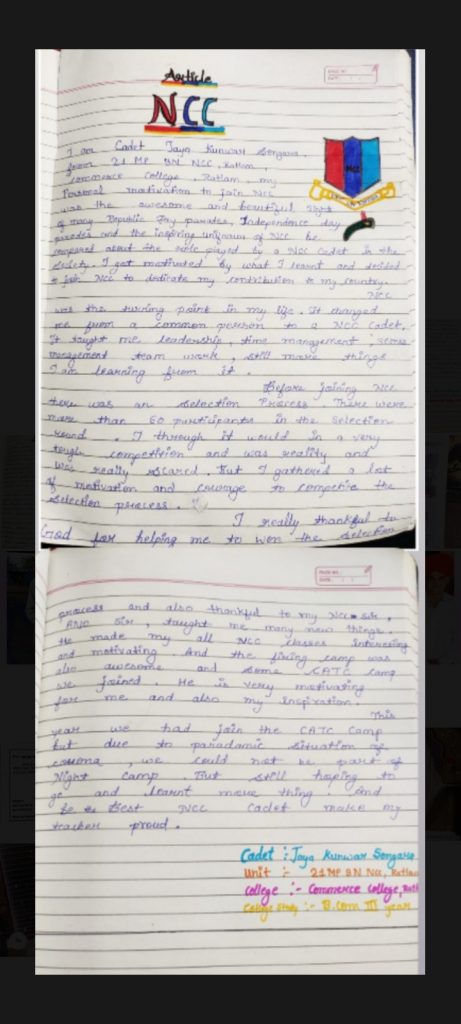 Article
NCC
I am Cadet Jaya Kunwar Songara,
from 21 MP BN NCC, Ratlam,
Commerce College, Ratlam my
Personal motivation to join NCC
was the awesome and beautiful sight
of many Republic Day parades, Independence day
parades and the inspiring uniform of NCC be
composed about the role played by a NCC Cadet in the
society. I got motivated by what I learnt and decided
to join NCC to dedicate my contribution to my country.
NCC
was the turning point in my life. It changed
me from a common person to a NCC Cadet.
It taught me leadership, time management,
management team work, still more things
I am learning from it.
Before joining NCC
there was an selection Process. There were
more than 60 participants in the selection
round. I through it would in a very
tough competition and was reality and
was really scared. But I gathered a lot
of motivation and courage to comperire the
selection process.
I really thankful to
God for helping me to won the selection
PAGE NO.:
DATE: / /
process and also thankful to my NCC sir,
ANO Sir, taught me many new things.
He made my all NCC classes interesting
and motivating. And the firing camp was
also awesome and some CATC camp
we joined. He is very motivating
for me and also my inspiration.
This
year we had join the CATC Camp
but due to pandamic situation of
corona, we could not be part of
Night camp. But still hoping to
go and learnt more thing. And
be a Best NCC Cadet make my
teacher proud.
Cadet :- Jaya Kunwar Songara
Unit :- 21 MP BN NCC, Ratlam
College :- Commerce College, Rat
College Study :- B.Com III year